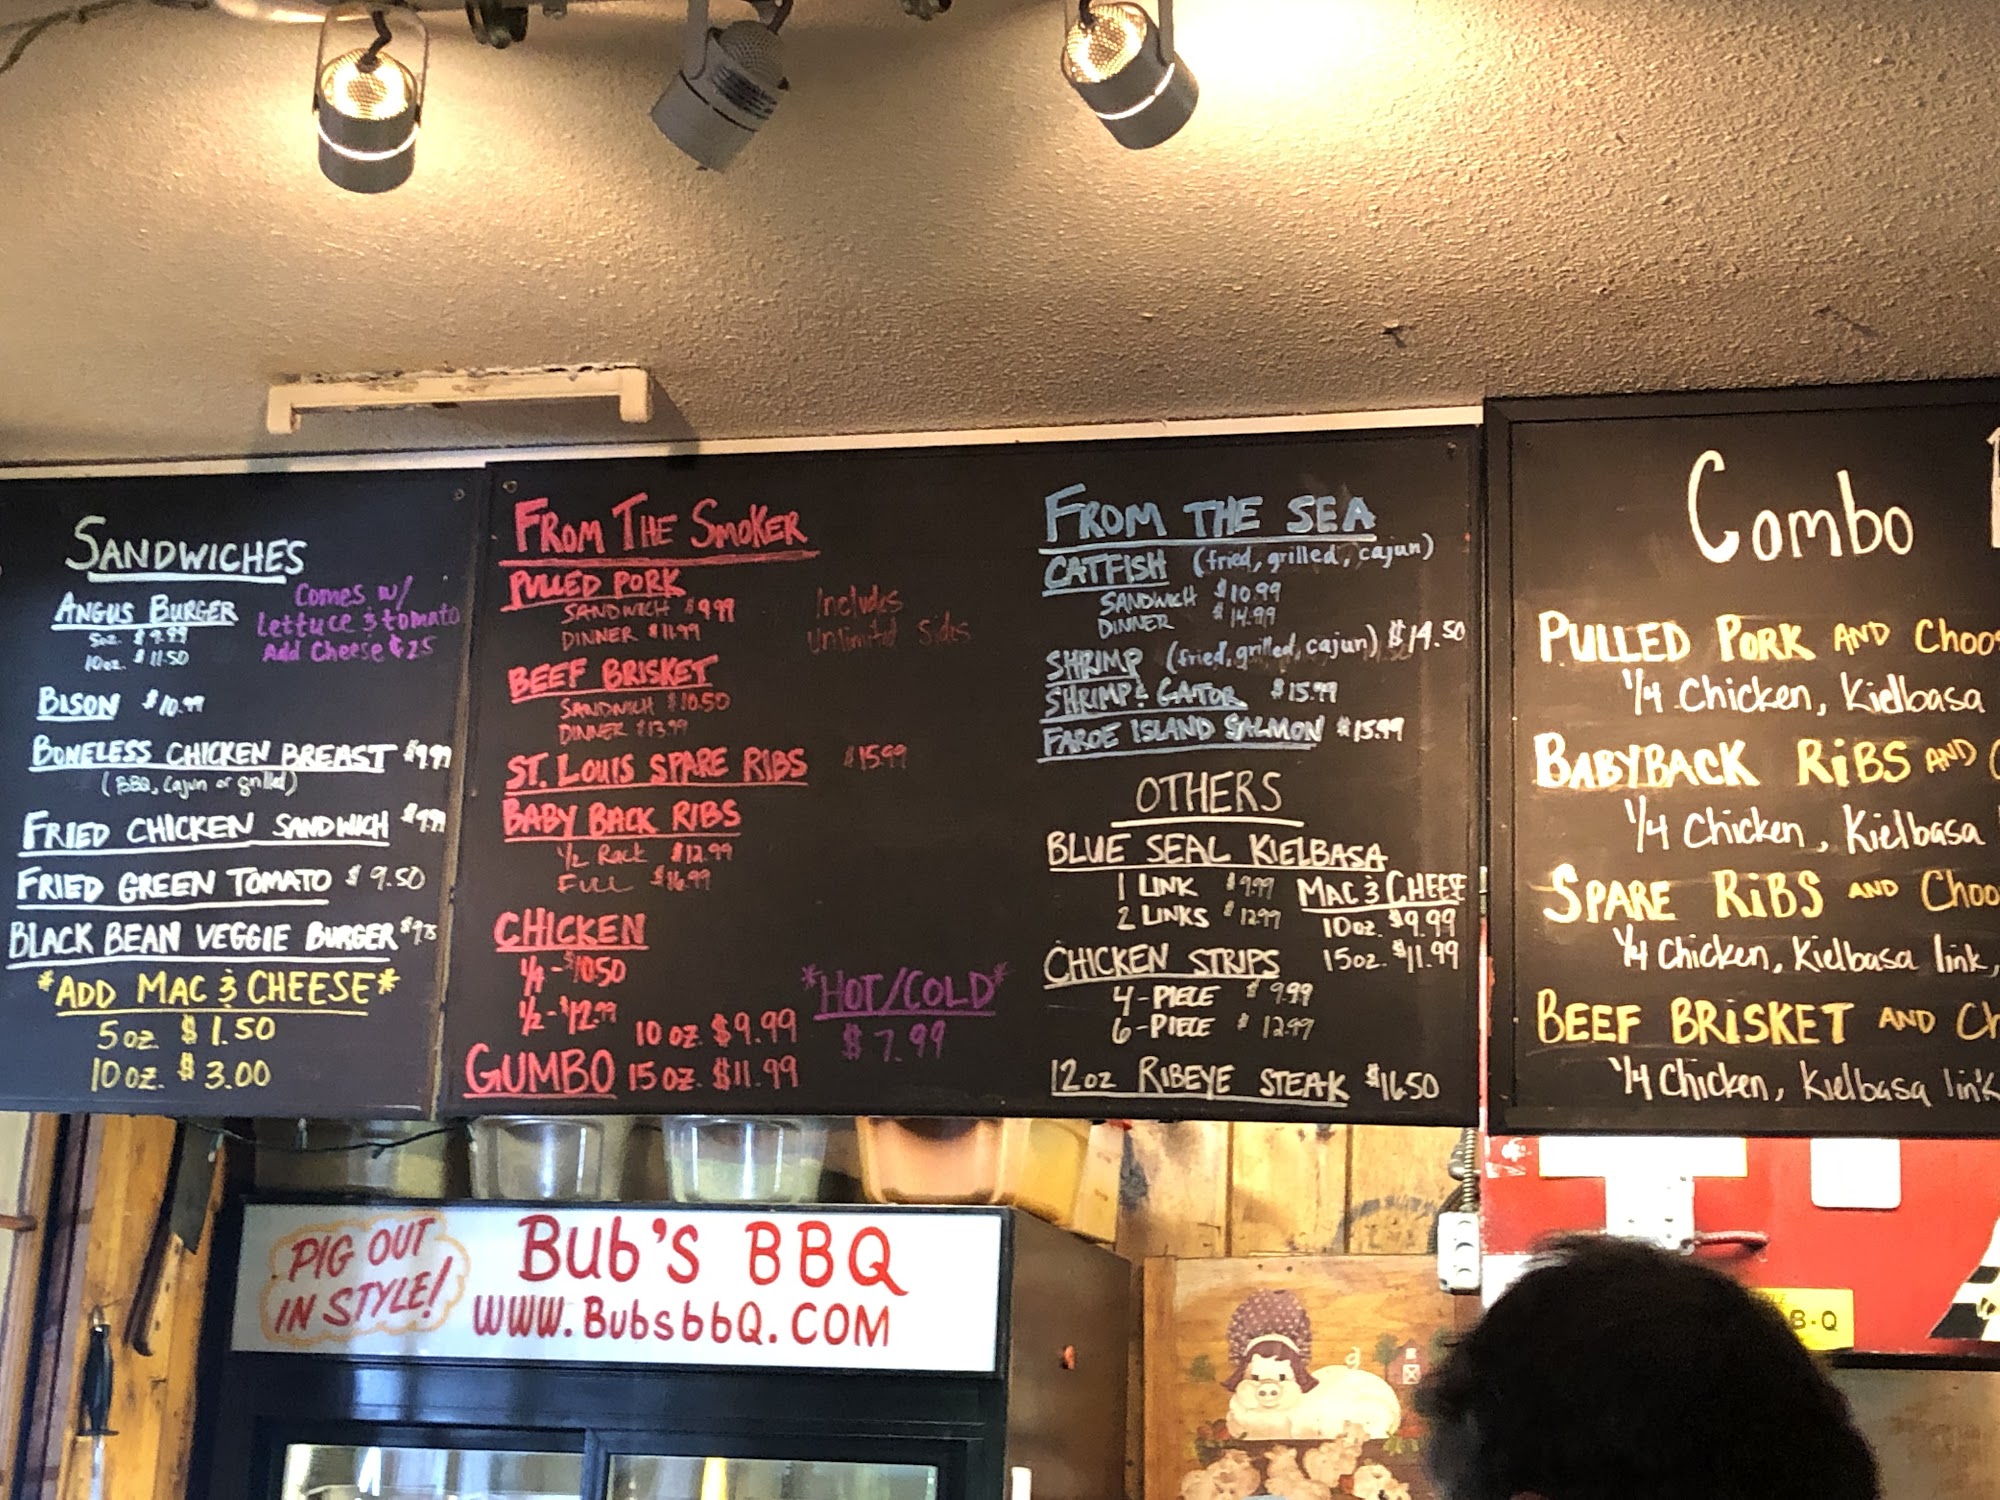 SANDWICHES
Comes w/
Lettuce & tomato
Add Cheese ¢25
ANGUS BURGER
5oz. $9.99
10oz. $11.50
BISON $10.99
BONELESS CHICKEN BREAST $9.99
(BBQ, Cajun or grilled)
FRIED CHICKEN SANDWICH $9.99
FRIED GREEN TOMATO $9.50
BLACK BEAN VEGGIE BURGER $9.75
*ADD MAC & CHEESE*
5oz. $1.50
10oz. $3.00
FROM THE SMOKER
PULLED PORK
SANDWICH $9.99
DINNER $11.99
Includes
Unlimited Sides
BEEF BRISKET
SANDWICH $10.50
DINNER $13.99
ST. LOUIS SPARE RIBS $15.99
BABY BACK RIBS
1/2 Rack $12.99
FULL $16.99
CHICKEN
1/4 - $10.50
1/2 - $12.99
GUMBO 10 oz. $9.99
15 oz. $11.99
*HOT/COLD*
$7.99
FROM THE SEA
CATFISH (fried, grilled, cajun)
SANDWICH $10.99
DINNER $14.99
SHRIMP (fried, grilled, cajun) $14.50
SHRIMP & GATOR $15.99
FAROE ISLAND SALMON $15.99
OTHERS
BLUE SEAL KIELBASA
1 LINK $9.99
2 LINKS $12.99
MAC & CHEESE
10oz. $9.99
15oz. $11.99
CHICKEN STRIPS
4-PIECE $9.99
6-PIECE $12.99
12oz RIBEYE STEAK $16.50
Combo
PULLED PORK AND Choos
1/4 Chicken, Kielbasa
BABYBACK RiBS AND C
1/4 Chicken, Kielbasa
SPARE RiBS AND Choo
1/4 Chicken, Kielbasa link,
BEEF BRiSKET AND Ch
1/4 Chicken, Kielbasa link
PIG OUT
IN STYLE!
BUB'S BBQ
WWW.BUBSBBQ.COM
B-Q